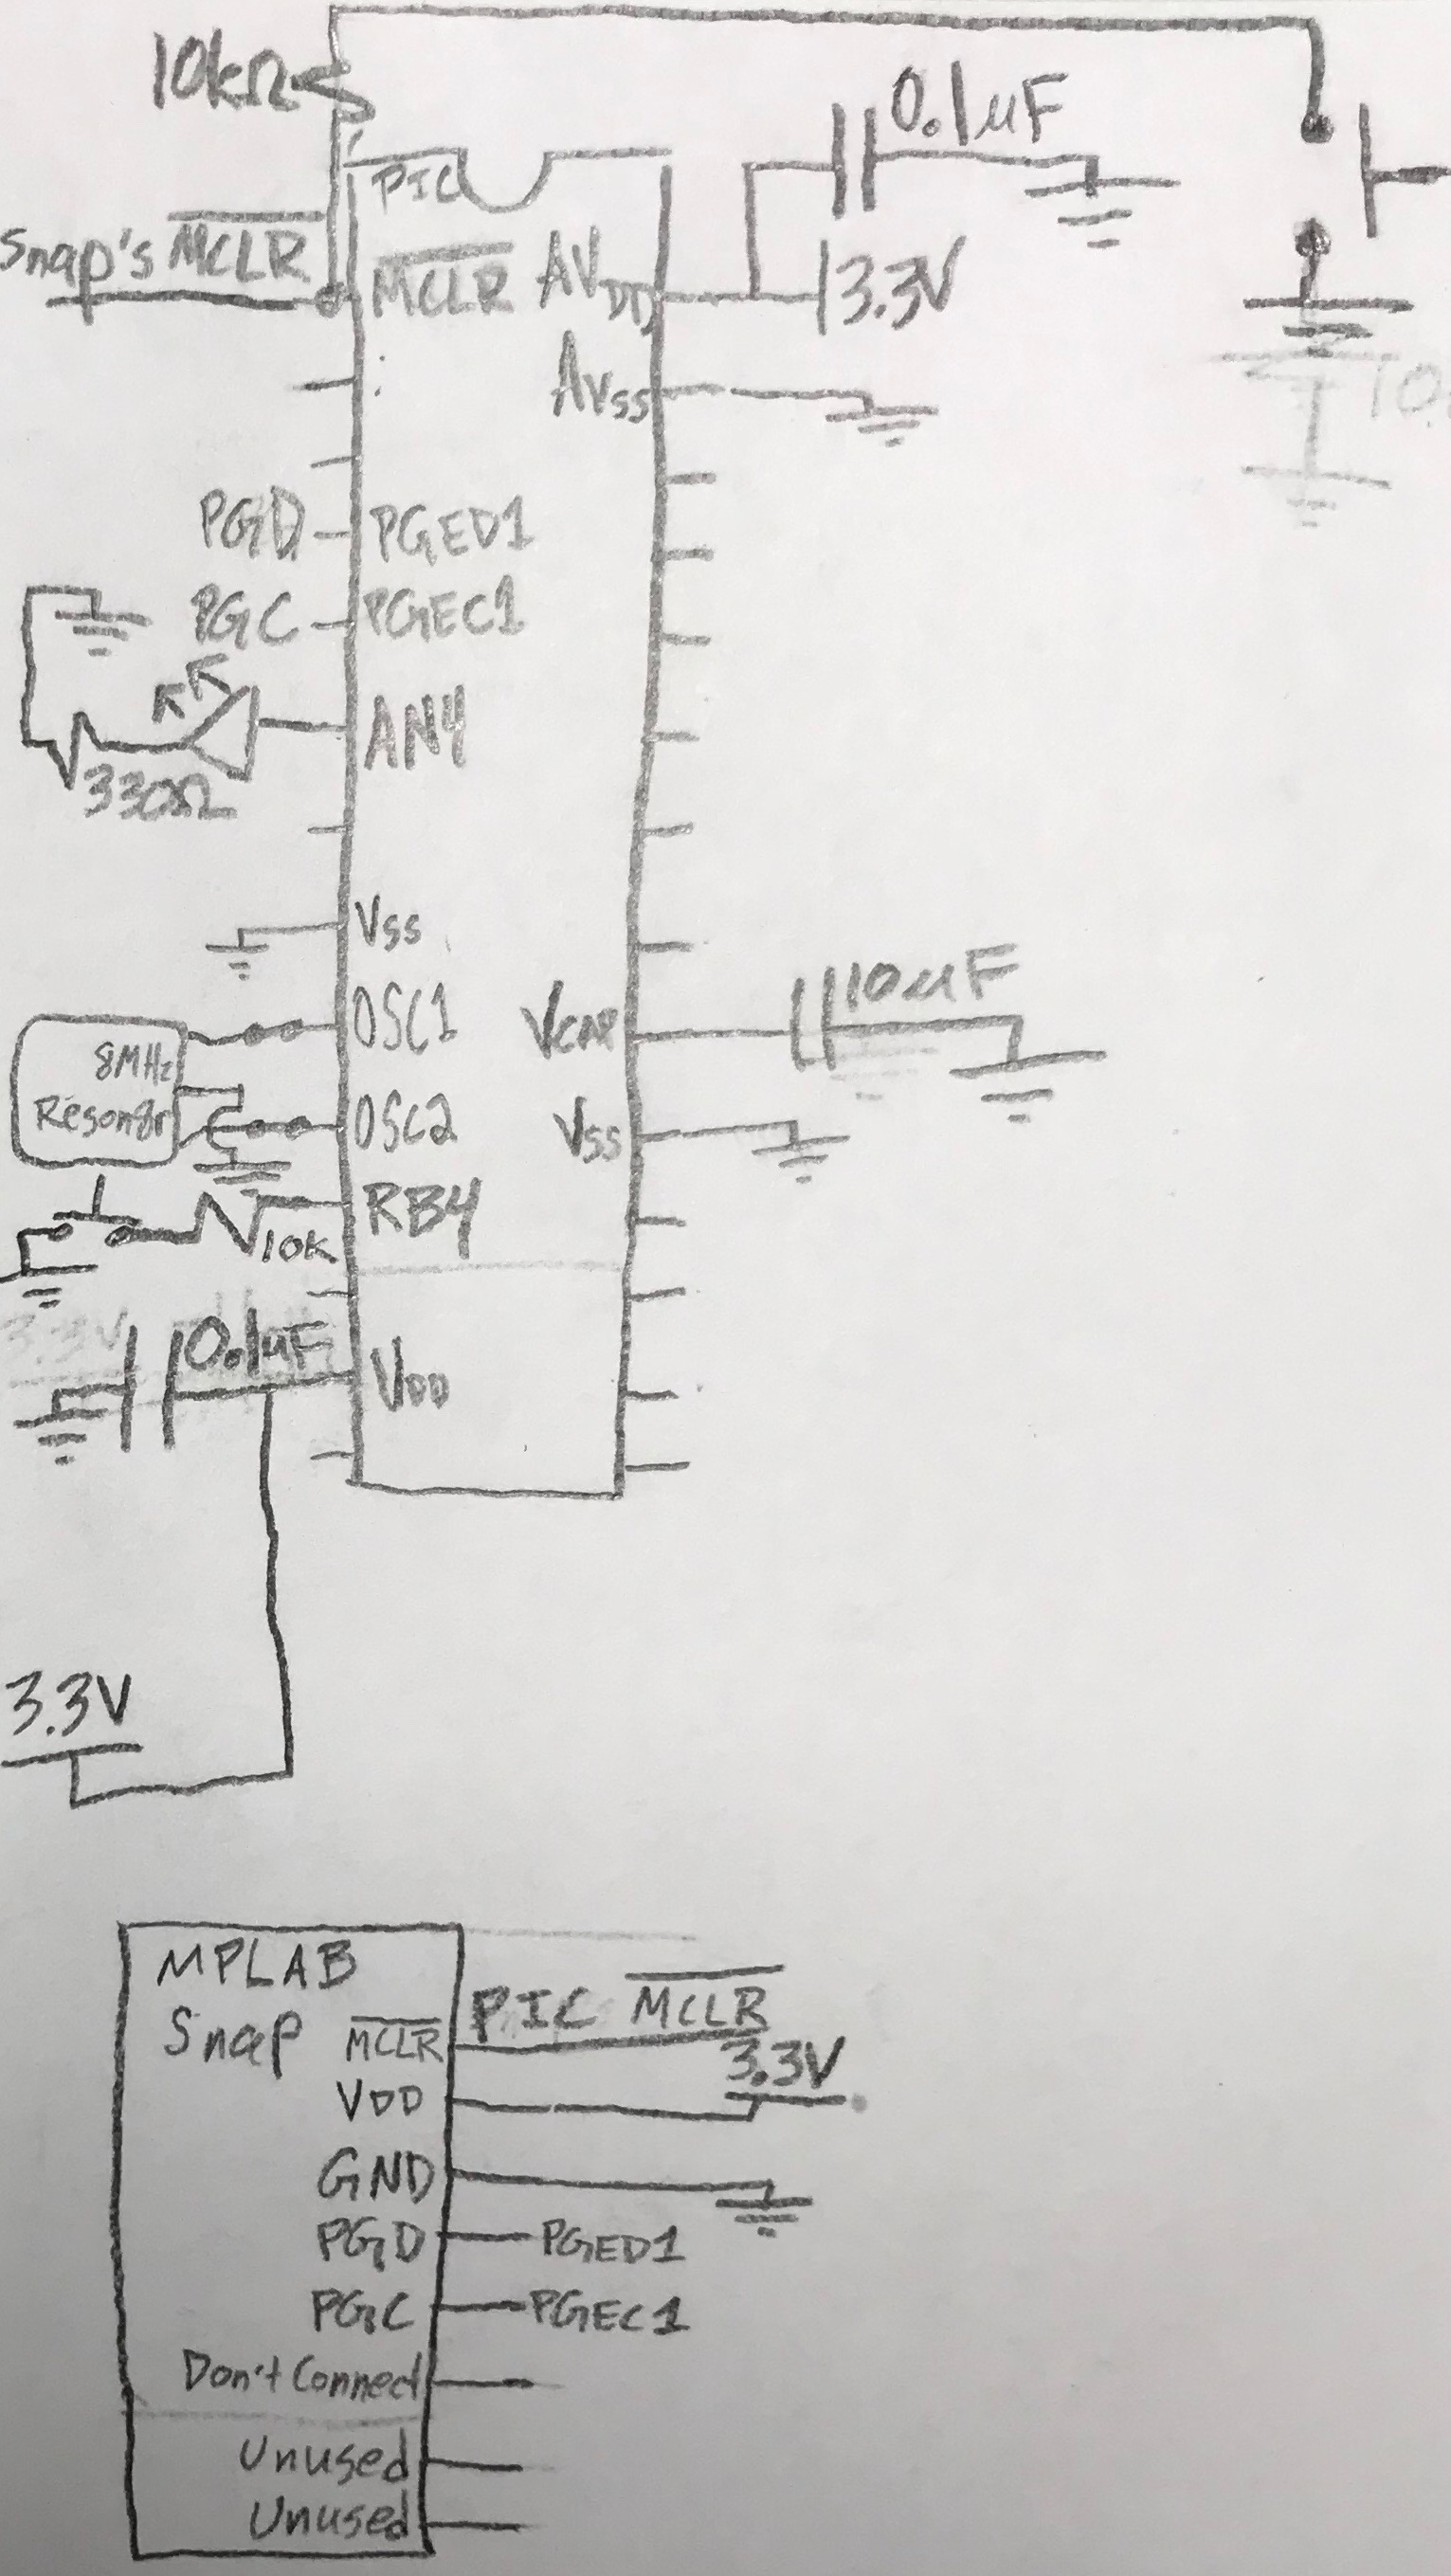 10kΩ
0.1uF
PIC
Snap's MCLR
MCLR
AVDD
3.3V
AVSS
PGD
PGED1
PGC
PGEC1
AN4
330Ω
VSS
OSC1
8MHz
Reson8r
OSC2
VCAP
10uF
VSS
RB4
10K
3.3V
0.1uF
VDD
3.3V
MPLAB
Snap
MCLR
PIC MCLR
VDD
3.3V
GND
PGD
PGED1
PGC
PGEC1
Don't Connect
Unused
Unused